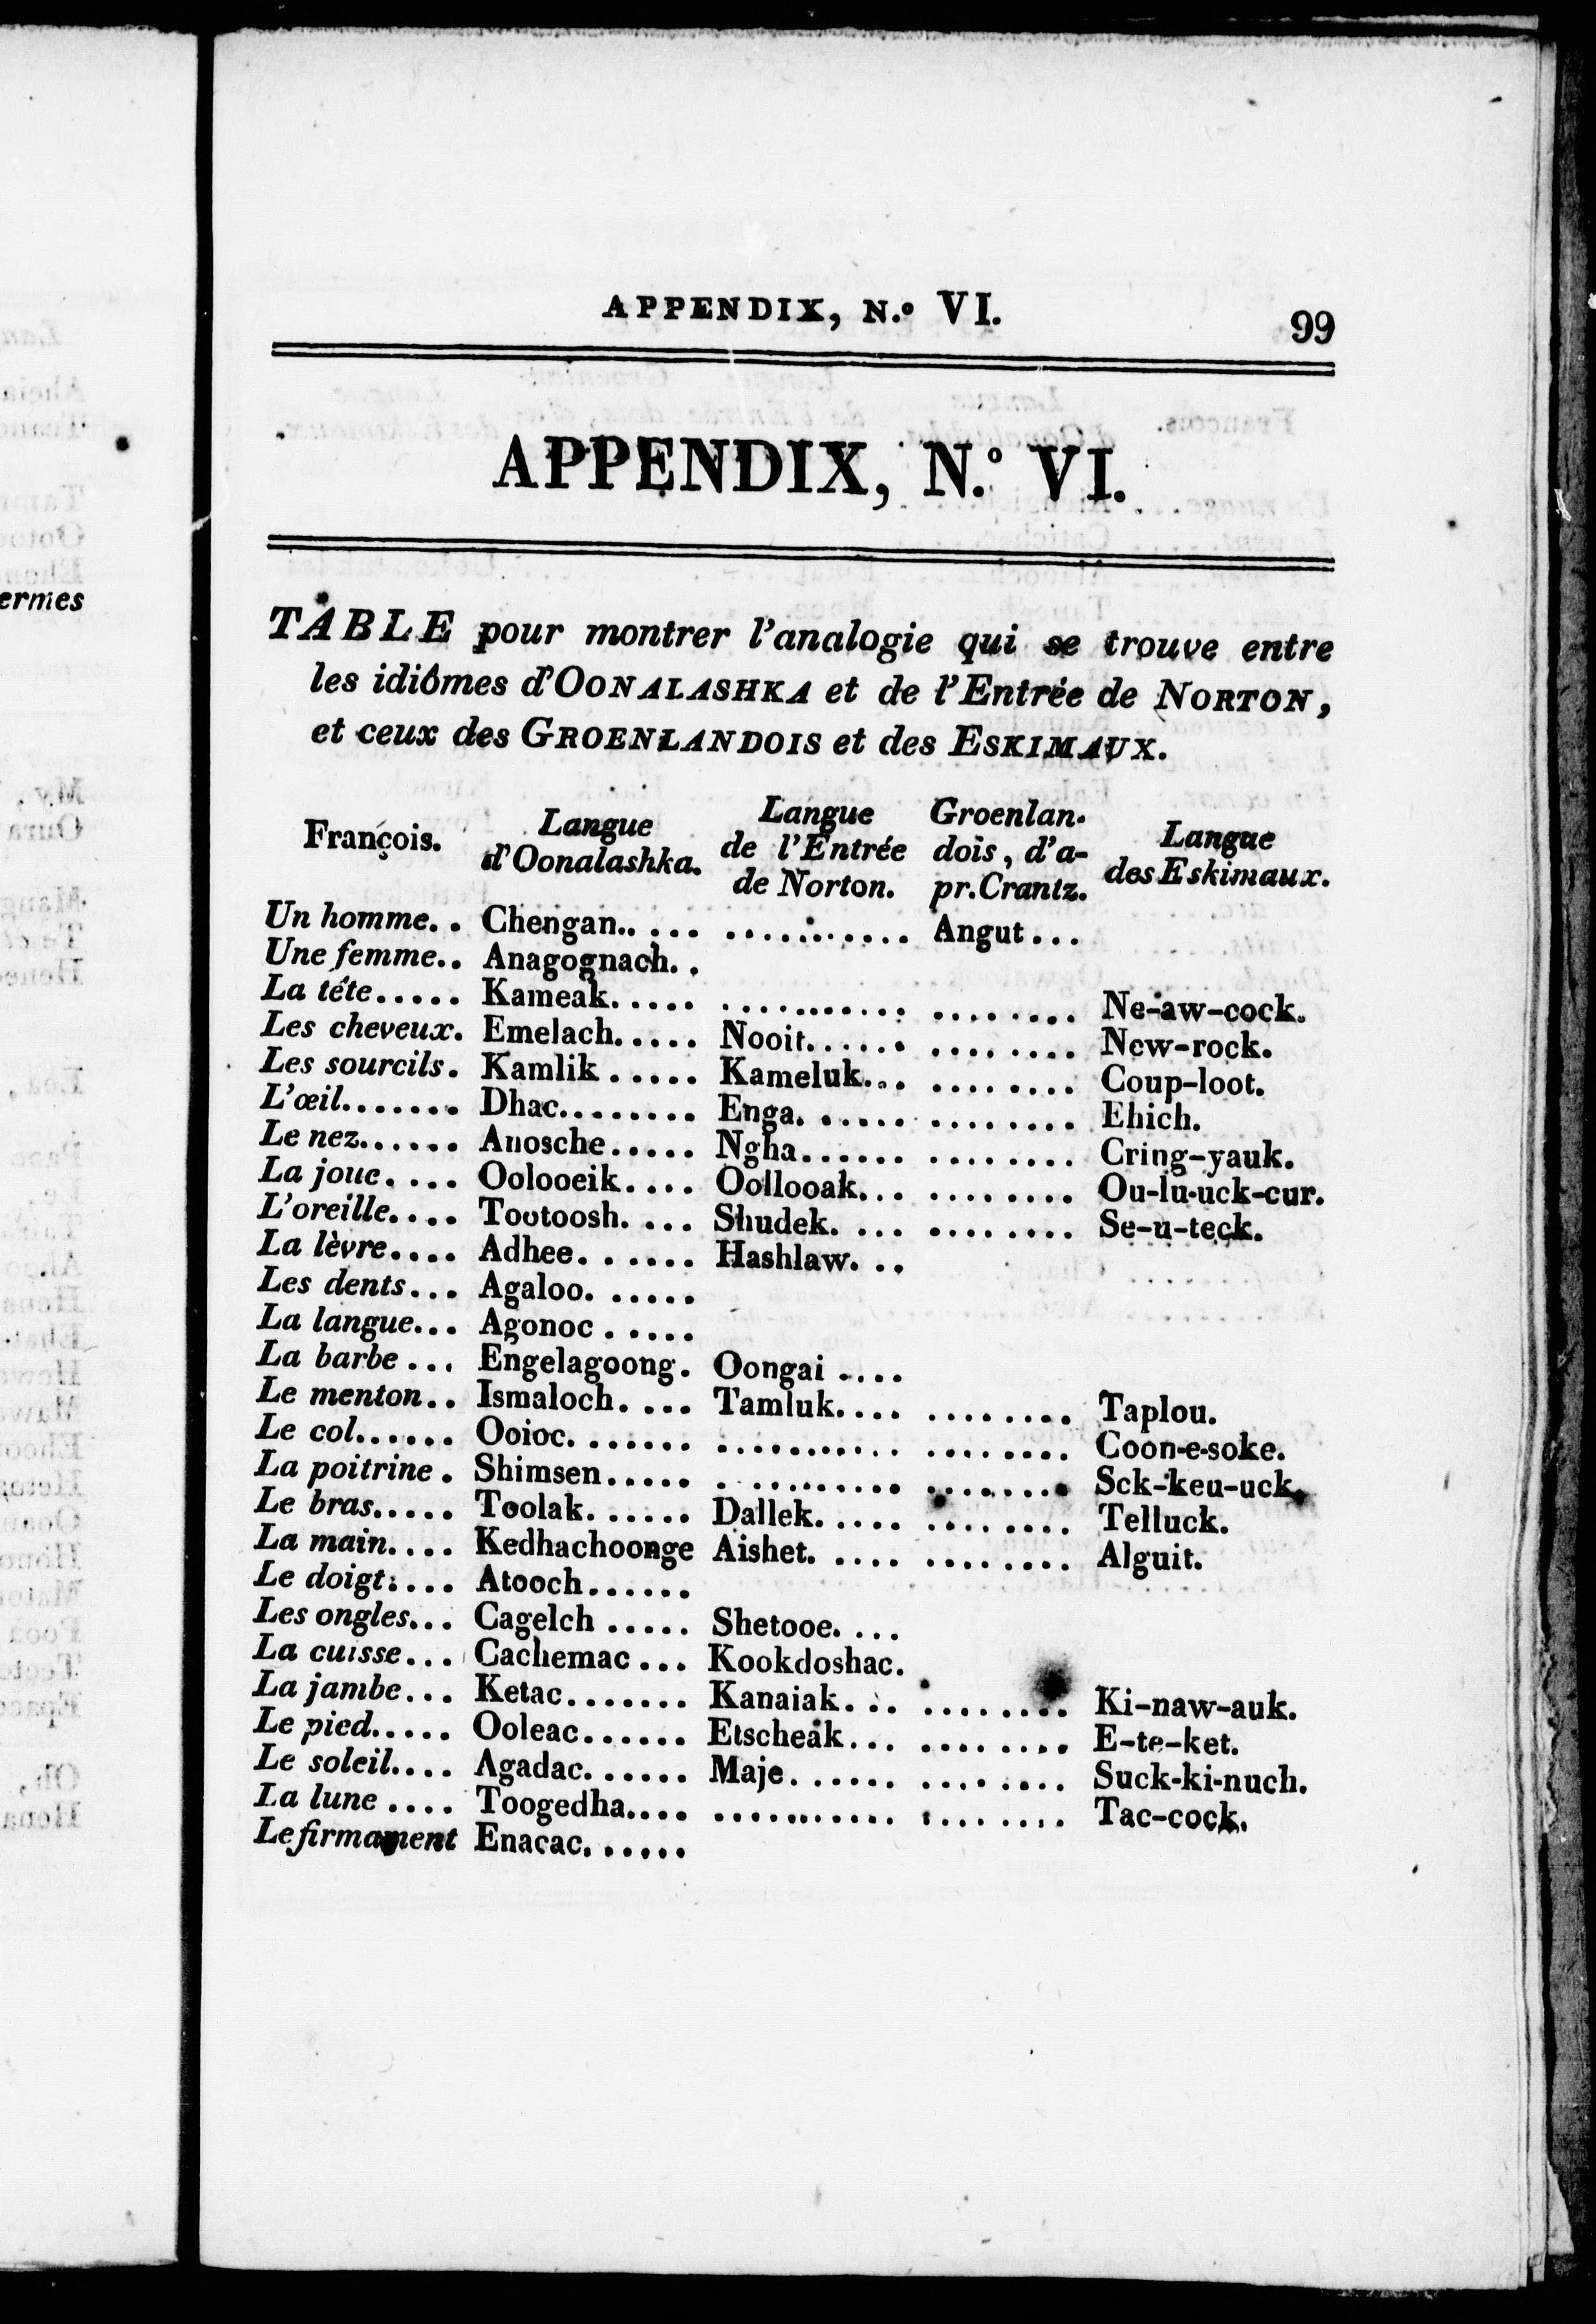 APPENDIX, N.º VI. 99
APPENDIX, N.º VI.
ermes
TABLE pour montrer l'analogie qui se trouve entre
les idiômes d'OONALASHKA et de l'Entrée de NORTON,
et ceux des GROENLANDOIS et des ESKIMAUX.
François. Langue d'Oonalashka. Langue de l'Entrée de Norton. Groenlandois, d'apr. Crantz. Langue des Eskimaux.
Un homme.. Chengan..... ........... Angut...
Une femme.. Anagognach..
La tête..... Kameak..... ........... ........ Ne-aw-cock.
Les cheveux. Emelach..... Nooit...... ........ New-rock.
Les sourcils. Kamlik..... Kameluk... ........ Coup-loot.
L'œil....... Dhac........ Enga...... ........ Ehich.
Le nez...... Anosche..... Ngha...... ........ Cring-yauk.
La joue.... Oolooeik.... Oollooak... ........ Ou-lu-uck-cur.
L'oreille.... Tootoosh.... Shudek.... ........ Se-u-teck.
La lèvre.... Adhee...... Hashlaw...
Les dents... Agaloo......
La langue... Agonoc.....
La barbe... Engelagoong. Oongai....
Le menton.. Ismaloch.... Tamluk.... ........ Taplou.
Le col...... Ooioc....... ........... ........ Coon-e-soke.
La poitrine. Shimsen..... ........... ........ Sck-keu-uck.
Le bras..... Toolak...... Dallek..... ........ Telluck.
La main.... Kedhachoonge Aishet..... ........ Alguit.
Le doigt.... Atooch......
Les ongles... Cagelch..... Shetooe....
La cuisse... Cachemac... Kookdoshac.
La jambe... Ketac....... Kanaiak... ........ Ki-naw-auk.
Le pied..... Ooleac...... Etscheak... ........ E-te-ket.
Le soleil.... Agadac...... Maje...... ........ Suck-ki-nuch.
La lune.... Toogedha.... ........... ........ Tac-cock.
Le firmament Enacac......